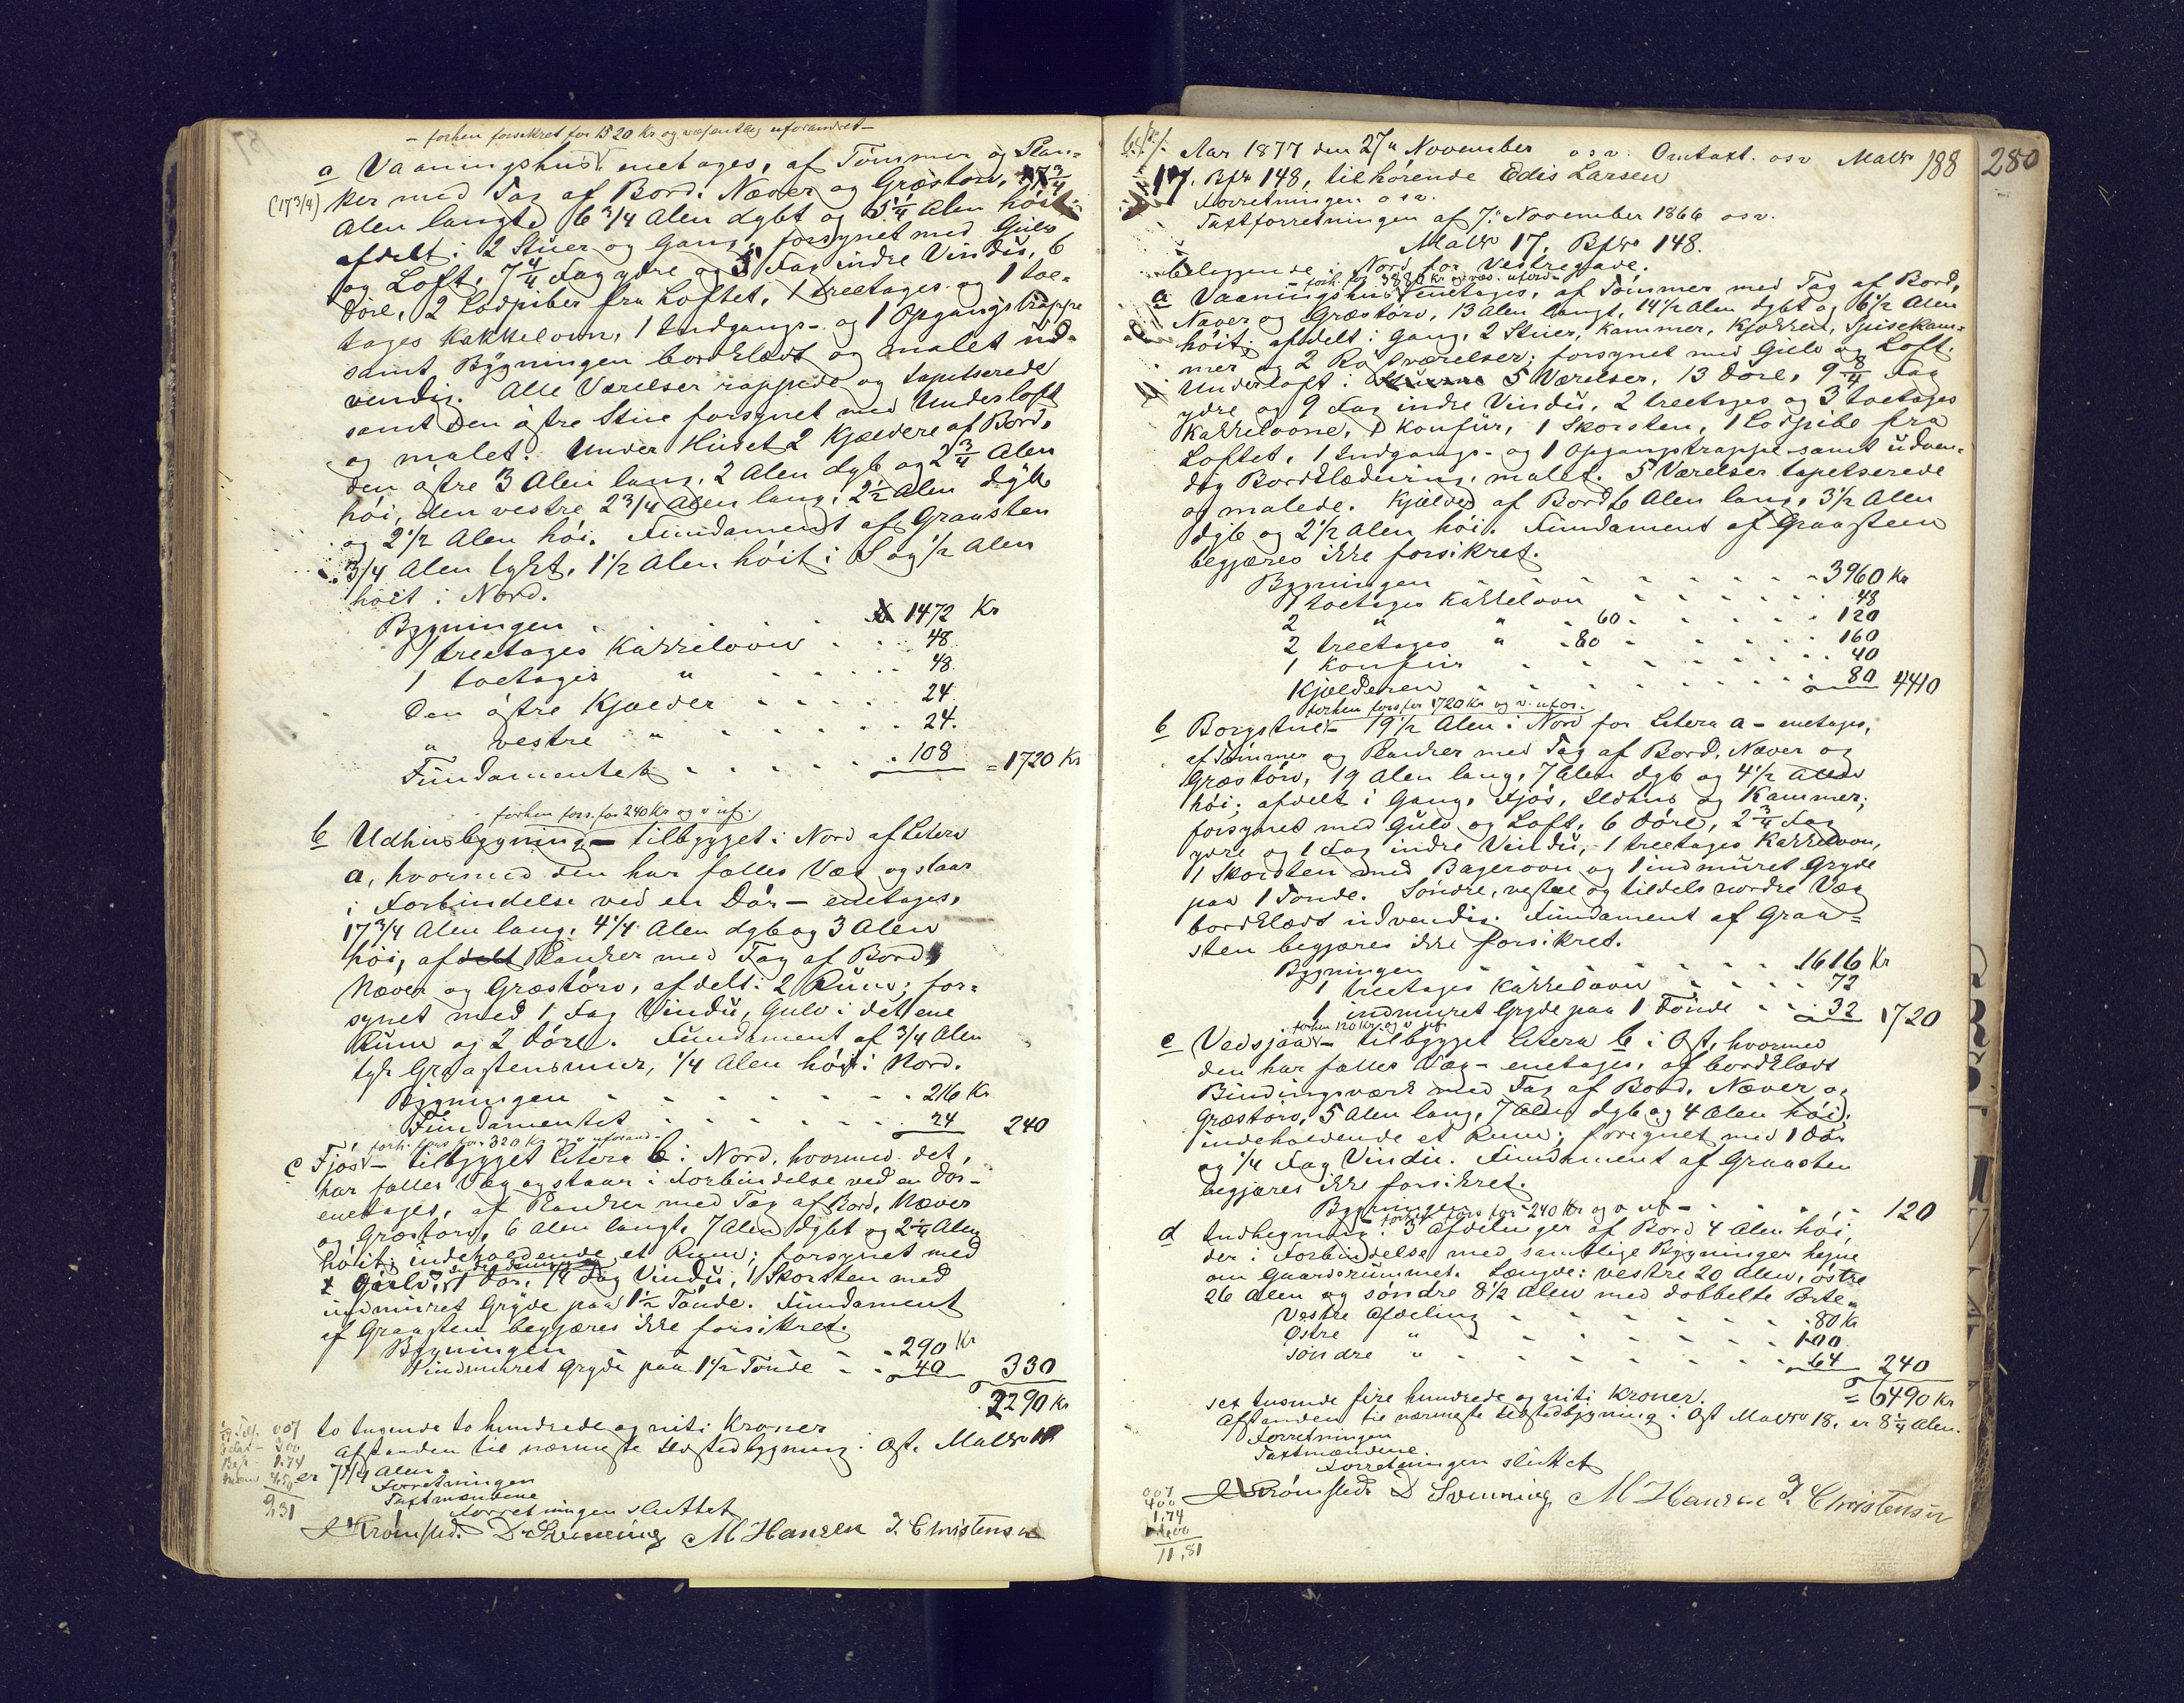 - forhen forsikret for 1520 Kr og væsentlig uforandret -
a Vaaningshus enetages, af Tømmer og Plan-
(17 3/4) ker med Tag af Bord, Næver og Græstorv, 17 3/4
Alen langt, 6 3/4 Alen dybt og 5 1/4 Alen høit
afdelt i 2 Stuer og Gang, forsynet med Gulv
og Loft, 7 4/4 Fag ydre og 5 Fag indre Vindu, 6
Døre, 2 Lodpiber fra Loftet, 1 treetages og 1 toe-
tages Kakkelovn, 1 Indgangs- og 1 Opgangstrappe
samt Bygningen bordklædt og malet ud-
vendig. Alle Værelser rappede og tapetserede
samt den østre Stue forsynet med Underloft
og malet. Under Huset 2 Kjældere af Bord,
den østre 3 Alen lang, 2 Alen dyb og 2 3/4 Alen
høi, den vestre 2 3/4 Alen lang, 2 1/2 Alen dyb
og 2 1/2 Alen høi. Fundament af Graasten
3/4 Alen tykt, 1 1/2 Alen høit i S og 1/2 Alen
høit i Nord.
Bygningen 1472 Kr
1 treetages Kakkelovn 48
1 toetages " 48
Den østre Kjælder 24
" vestre " 24
Fundamentet 108 = 1720 Kr
forhen fors. for 240 Kr og v uf.
b Udhusbygning - tilbygget i Nord af Litera
a, hvormed den har fælles Væg og staar
i Forbindelse ved en Dør - enetages,
17 3/4 Alen lang, 4 1/4 Alen dyb og 3 Alen
høi, af delt Planker med Tag af Bord,
Næver og Græstorv, afdelt i 2 Rum; for-
synet med 1 Fag Vindu, Gulv i det ene
Rum og 2 Døre. Fundament af 3/4 Alen
tyk Graastensmur, 1/4 Alen høit i Nord.
Bygningen 216 Kr
Fundamentet 24 240
forh. fors for 320 Kr og v uforand.
c Fjøs - tilbygget Litera b i Nord, hvormed det
har fælles Væg og staar i Forbindelse ved en Dør -
enetages, af Planker med Tag af Bord, Næver
og Græstorv, 6 Alen langt, 7 Alen dybt og 2 1/4 Alen
høit; indeholdende et Rum; forsynet med
Gulv, 1 Dør, 1/4 Fag Vindu, 1 Skorsten med
indmuret Gryde paa 1 1/2 Tønde. Fundament
af Graasten begjæres ikke forsikret.
Bygningen 290 Kr
1 indmuret Gryde paa 1 1/2 Tønde 40 330
2290 Kr
to tusende to hundrede og niti Kroner
Afstanden til nærmeste Ildstedbygning i Øst, Mat No
er 7 1/4 Alen.
Forretningen
Taxtmændene
Forretningen sluttet
007
300
1.74
4.50
9,31
J Krømsted. D Svenning M Hansen J. Christensen
Aar 1877 den 27de November osv. Omtaxt. osv Mat No 188 280
17. Bp No 148, tilhørende Edis Larsen
Forretningen osv.
Taxtforretningen af 7. November 1866 osv.
Mat No 17. Bp No 148.
beliggende i Nord for Vestregade.
- forh. for 3880 Kr og væs. uford -
a Vaaningshus enetages, af Tømmer med Tag af Bord,
Næver og Græstorv, 13 Alen langt, 14 1/2 Alen dybt og 6 1/2 Alen
høit; afdelt i Gang, 2 Stuer, Kammer, Kjøkken, Spisekam-
mer og 2 Værelser; forsynet med Gulv og Loft.
Underloft i 5 Værelser, 13 Døre, 9 8/4 Fag
ydre og 9 Fag indre Vindu, 2 treetages og 3 toetages
Kakkelovne, 1 Konfur, 1 Skorsten, 1 Lodpibe fra
Loftet, 1 Indgangs- og 1 Opgangstrappe samt udven-
dig Bordklædning, malet. 5 Værelser tapetserede
og malede. Kjælder af Bord 6 Alen lang, 3 1/2 Alen
dyb og 2 1/2 Alen høi. Fundament af Graasteen
begjæres ikke forsikret.
Bygningen 3960 Kr
1 toetages Kakkelovn 48
2 " 60 120
2 treetages " 80 160
1 Konfur 40
Kjælderen 80 4410
forhen fors for 1720 Kr og v. ufor.
b Borgstue - 19 1/2 Alen i Nord for Litera a - enetages,
af Tømmer og Planker med Tag af Bord, Næver og
Græstorv, 19 Alen lang, 7 Alen dyb og 4 1/2 Alen
høi; afdelt i Gang, Fjøs, Ildhus og Kammer;
forsynet med Gulv og Loft, 6 Døre, 2 3/4 Fag
ydre og 1 Fag indre Vindu, 1 treetages Kakkelovn,
1 Skorsten med Bagerovn og 1 indmuret Gryde
paa 1 Tønde. Søndre, vestre og tildels nordre Væg
bordklædt udvendig. Fundament af Graa-
sten begjæres ikke forsikret.
Bygningen 1616 Kr
1 treetages Kakkelovn 72
1 indmuret Gryde paa 1 Tønde 32 1720
forhen 120 Kr og v uf.
c Vedsjaa - tilbygget Litera b i Øst, hvormed
den har fælles Væg - enetages, af bordklædt
Bindingsværk med Tag af Bord, Næver og
Græstorv, 5 Alen lang, 7 Alen dyb og 4 Alen høi;
indeholdende et Rum; forsynet med 1 Dør
og 1/4 Fag Vindu. Fundament af Graasten
begjæres ikke forsikret.
Bygningen 120
forhen fors for 240 Kr og v uf -
d Indhegning i 3 Afdelinger af Bord 4 Alen høi,
der i Forbindelse med samtlige Bygninger hegne
om Gaardsrummet. Længde: vestre 20 Alen, østre
26 Alen og søndre 8 1/2 Alen med dobbelte Porte.
Vestre Afdeling 80 Kr
Østre " 100
Søndre " 64 240
= 6490 Kr
sex tusende fire hundrede og niti Kroner.
Afstanden til nærmeste Ildstedbygning i Øst Mat No 18, er 8 1/4 Alen.
Forretningen
Taxtmændene.
Forretningen sluttet
007
400
1.74
11,81
J Krømsted. D Svenning M Hansen J. Christensen